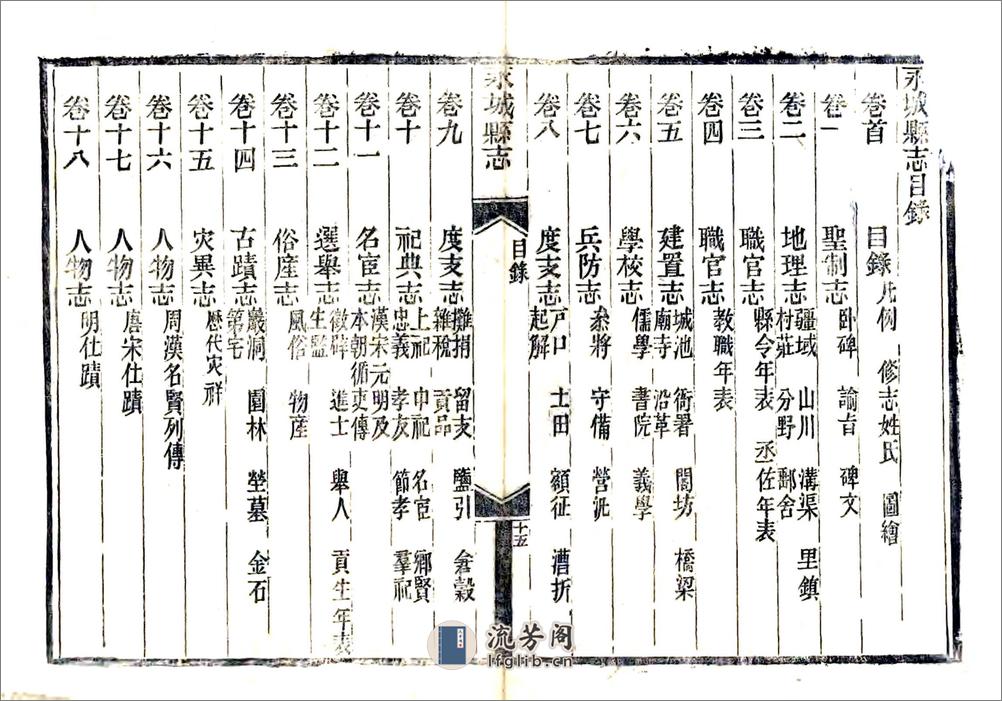 永城縣志目錄
卷首 目錄 凡例 修志姓氏 圖繪
卷一 聖制志 卧碑 諭旨 碑文
卷二 地理志 疆域 山川 溝渠 里鎮
村莊 分野 鄅舍
卷三 職官志 縣令年表 丞佐年表
卷四 職官志 教職年表
卷五 建置志 城池 衙署 閭坊 橋梁
廟寺 沿革
卷六 學校志 儒學 書院 義學
卷七 兵防志 叅將 守備 營汛
卷八 度支志 戸口 土田 額征 漕折
起解
永城縣志
目錄
十五
卷九 度支志 攤捐 留支 鹽引 倉穀
雜稅 貢品
卷十 祀典志 上祀 中祀 名宦 鄉賢
忠義 孝友 節孝 羣祀
卷十一 名宦志 漢宋元明及
本朝循吏傳
卷十二 選舉志 徵辟 進士 舉人 貢生年表
生監
卷十三 俗產志 風俗 物產
卷十四 古蹟志 巖洞 園林 塋墓 金石
第宅
卷十五 灾異志 歷代灾祥
卷十六 人物志 周漢名賢列傳
卷十七 人物志 唐宋仕蹟
卷十八 人物志 明仕蹟
流芳阁
lfglib.cn